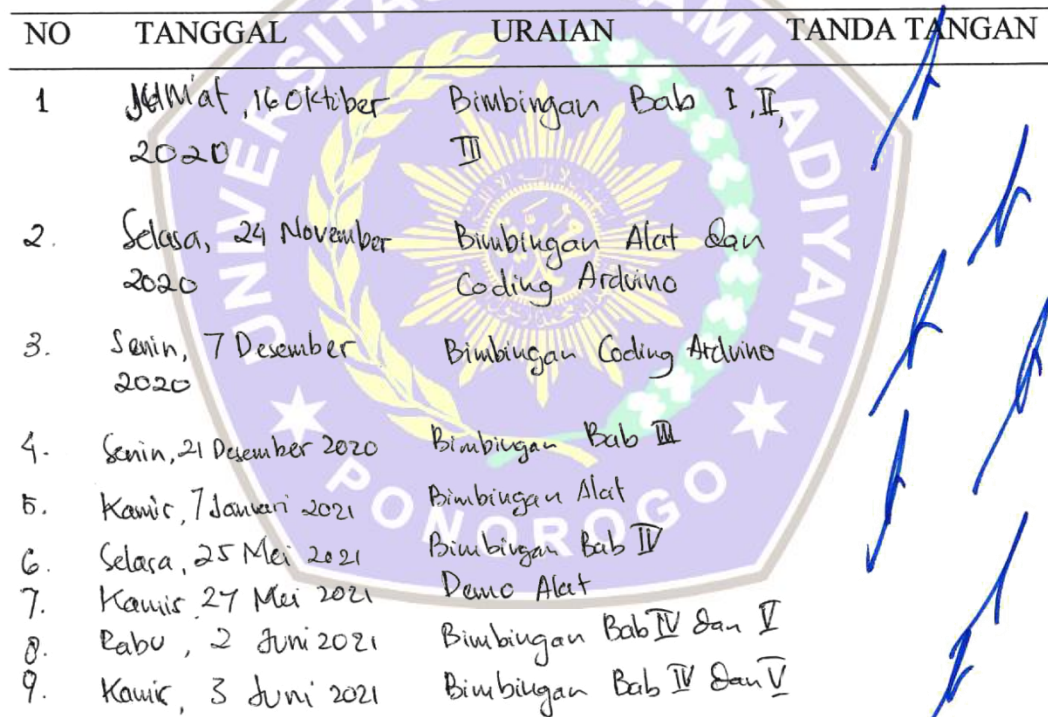 NO TANGGAL URAIAN TANDA TANGAN
1 Jum'at, 16 Oktiber Bimbingan Bab I, II,
2020 III
2. Selasa, 24 November Bimbingan Alat dan
2020 Coding Arduino
3. Senin, 7 Desember Bimbingan Coding Arduino
2020
4. Senin, 21 Desember 2020 Bimbingan Bab III
5. Kamis, 7 Januari 2021 Bimbingan Alat
6. Selasa, 25 Mei 2021 Bimbingan Bab IV
7. Kamis 27 Mei 2021 Demo Alat
8. Rabu, 2 Juni 2021 Bimbingan Bab IV dan V
9. Kamis, 3 Juni 2021 Bimbingan Bab IV dan V
PONOROGO